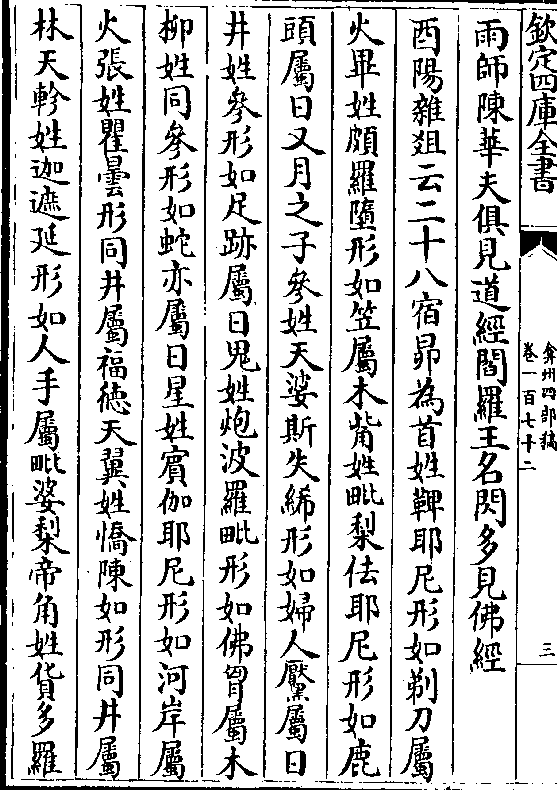 欽定四庫全書
弇州四部稿
卷一百七十二
三
雨師陳華夫俱見道經閻羅王名閃多見佛經
酉陽雜俎云二十八宿昴為首姓鞞耶尼形如剃刀屬
火畢姓頗羅墮形如笠屬木觜姓毗梨佉耶尼形如鹿
頭屬日又月之子參姓天婆斯失絺形如婦人黶屬日
井姓參形如足跡屬日鬼姓炮波羅毗形如佛胷屬木
柳姓同參形如蛇亦屬日星姓賓伽耶尼形如河岸屬
火張姓瞿曇形同井屬福徳天翼姓憍陳如形同井屬
林天軫姓迦遮延形如人手屬毗婆梨帝角姓貨多羅